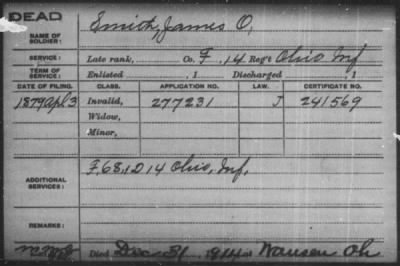 DEAD
NAME OF SOLDIER: Smith, James O.
SERVICE: Late rank, Co. F, 14 Reg't Ohio Inf
TERM OF SERVICE: Enlisted , 1 Discharged , 1
DATE OF FILING. CLASS. APPLICATION NO. LAW. CERTIFICATE NO.
1879 Apl 3 Invalid, 277231 J 241569
Widow,
Minor,
ADDITIONAL SERVICES: F, 68, & D 14 Ohio, Inf,
REMARKS:
Died Dec 31, 1914 at Wauseon Oh